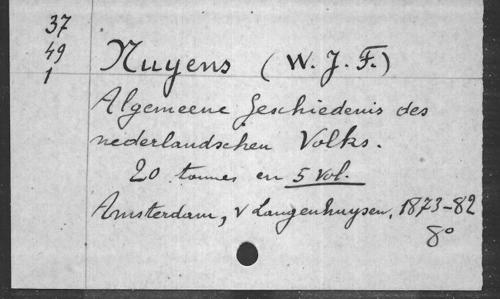 37
49
1
Nuyens (W. J. F.)
Algemeene Geschiedenis des
nederlandschen Volks.
20 tomes en 5 Vol.
Amsterdam, v Langenhuysen, 1873-82
8°